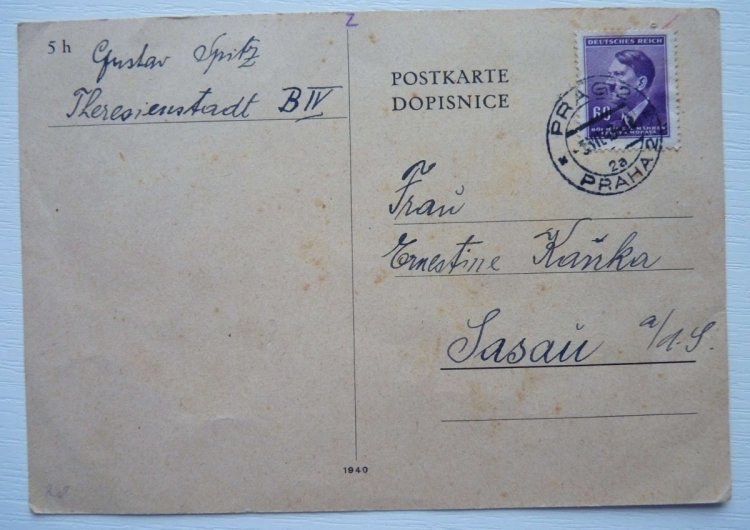 5 h
Gustav Spitz
Theresienstadt B IV
POSTKARTE
DOPISNICE
DEUTSCHES REICH
60
PRAG
2a
PRAHA 2
Frau
Ernestine Kaňka
Sasau a/d. S.
1940